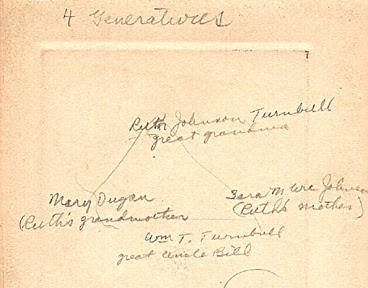 4 Generations
Ruth Johnson Turnbull
great grandma
Mary Dugan
(Ruth's grandmother
Sara M Johnson
(Ruth's mother)
Wm T. Turnbull
great uncle Bill